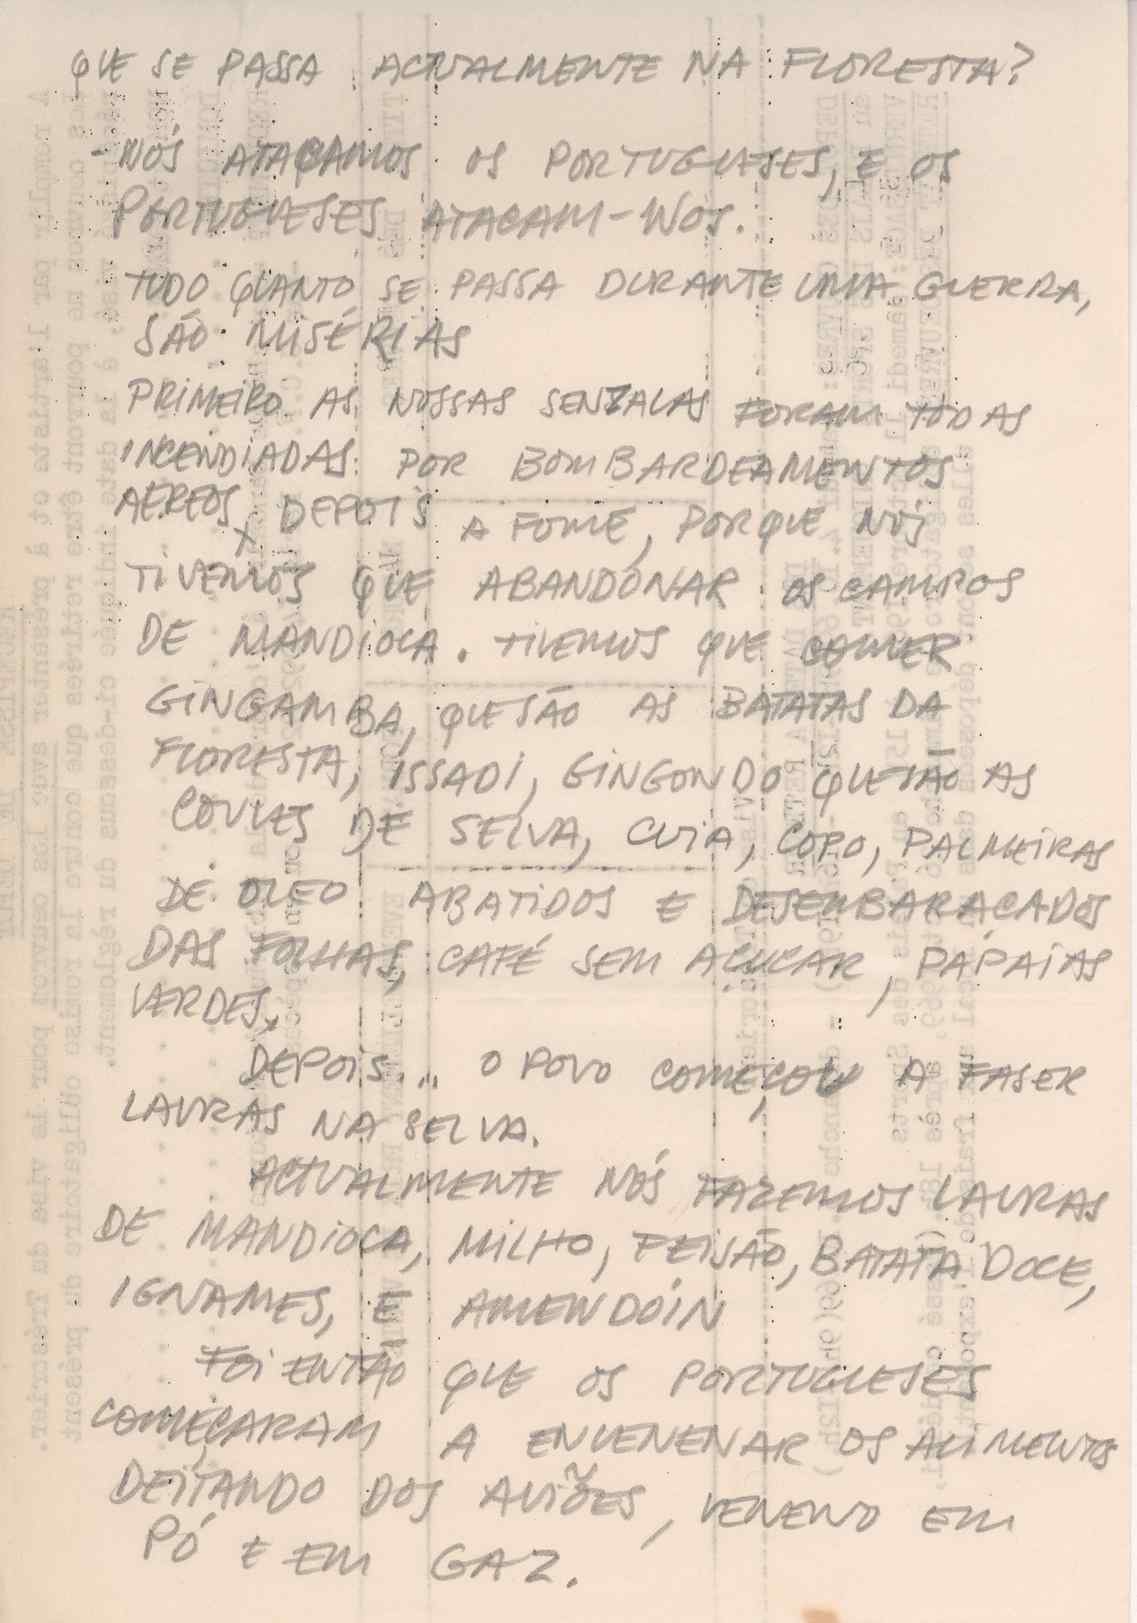 QUE SE PASSA ACTUALMENTE NA FLORESTA?
- NÓS ATACAMOS OS PORTUGUESES, E OS
PORTUGUESES ATACAM-NOS.
TUDO QUANTO SE PASSA DURANTE UMA GUERRA,
SÃO MISÉRIAS
PRIMEIRO AS NOSSAS SENZALAS FORAM TODAS
INCENDIADAS POR BOMBARDEAMENTOS
AÉREOS, DEPOIS A FOME, PORQUE NÓS
TIVEMOS QUE ABANDONAR OS CAMPOS
DE MANDIOCA. TIVEMOS QUE COMER
GINGAMBA, QUE SÃO AS BATATAS DA
FLORESTA, ISSADI, GINGONDO QUE SÃO AS
COUVES DE SELVA, CUIA, COPO, PALMEIRAS
DE OLEO ABATIDOS E DESEMBARAÇADOS
DAS FOLHAS, CAFÉ SEM AÇUCAR, PAPAIAS
VERDES,
DEPOIS... O POVO COMEÇOU A FASER
LAVRAS NA SELVA.
ACTUALMENTE NÓS FAZEMOS LAVRAS
DE MANDIOCA, MILHO, FEISÃO, BATATA DOCE,
IGNAMES, E AMENDOIN
FOI ENTÃO QUE OS PORTUGUESES
COMEÇARAM A ENVENENAR OS ALIMENTOS
DEITANDO DOS AVIÕES, VENENO EM
PÓ E EM GAZ.